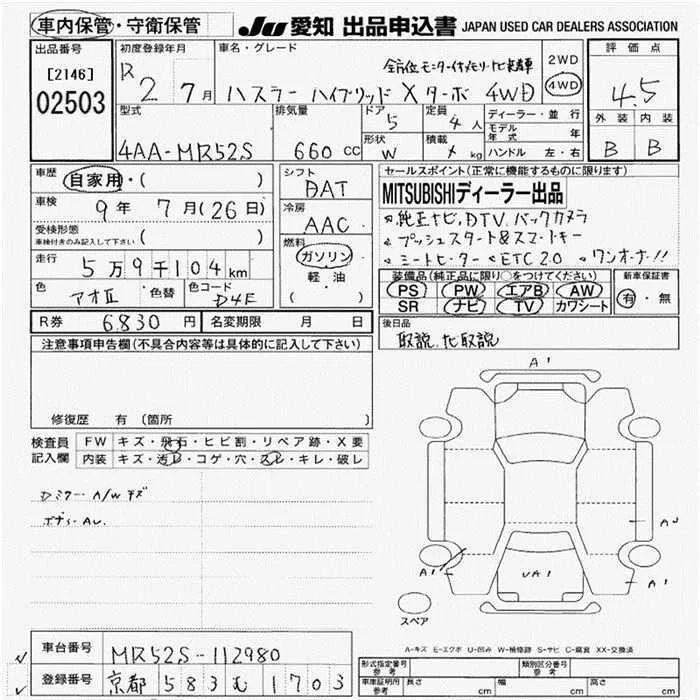 車内保管・守衛保管 JU 愛知 出品申込書 JAPAN USED CAR DEALERS ASSOCIATION
出品番号 初度登録年月 車名・グレード 評価点
[2146] R 2 7月 全方位モニター付メモリーナビ装着車 2WD
02503 ハスラー ハイブリッド X ターボ 4WD 4WD 4.5
型式 排気量 ドア 5 定員 4人 ディーラー・並行 外装 内装
4AA-MR52S 660 CC 形状 W 積載 kg モデル年式 年 B B
ハンドル 左・右
車歴 自家用・( ) シフト DAT セールスポイント(正常に機能するものに限ります)
車検 9年 7月(26日) 冷房 AAC MITSUBISHIディーラー出品
受検形態 純正ナビ、DTV、バックカメラ
車検付きのみ記入して下さい ( ) 燃料 プッシュスタート&スマートキー
走行 5万9千104km ガソリン シートヒーター ETC2.0 ワンオーナー!!
軽・油 装備品(純正品に限り○をつけてください) 新車保証書
色 アオII 色替 色コード D4F ( ) PS PW エアB AW 有・無
SR ナビ TV カワシート
R券 6,830円 名変期限 月 日 後日品
注意事項申告欄(不具合内容等は具体的に記入して下さい) 取説、ナビ取説
修復歴 有 (箇所 )
検査員 FW キズ・飛石・ヒビ割・リペア跡・X要
記入欄 内装 キズ・汚レ・コゲ・穴・スレ・キレ・破レ
Dミラー A/W キズ
ボデー AU.
A1
A1
UA1
A1
スペア
A-キズ E-エクボ U-凹み W-補修跡 S-サビ C-腐食 XX-交換済
車台番号 MR52S-112980
登録番号 京都 583 む 1703
形式指定番号 参考 類別区分番号 参考
車庫証明用 参考 長さ cm 幅 cm 高さ cm